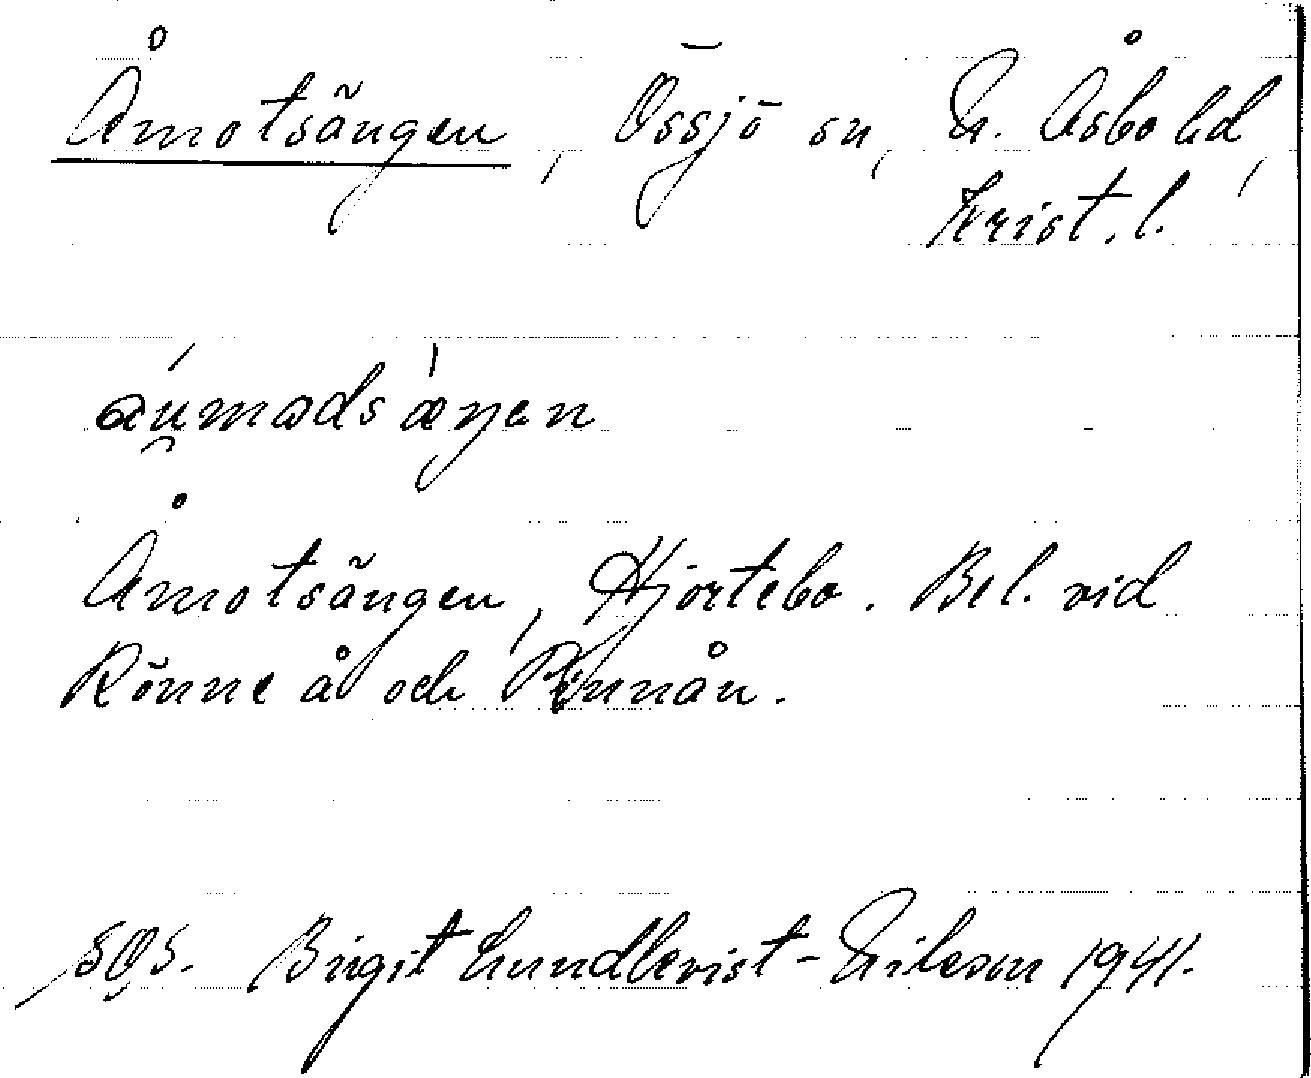 Åmotsängen, Össjö sn, S. Åsbo hd,
Krist. l.
Åmotsängen, Hjortebo. Bel. vid
Rönne å och Pinnån.
Birgit Lundkvist-Eileson 1941.